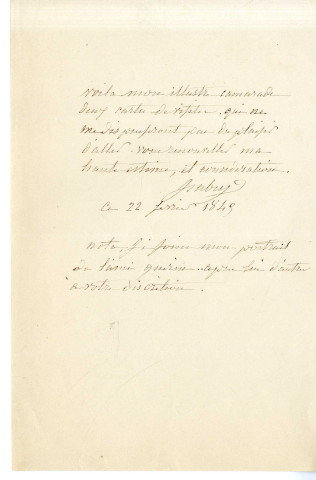 voila mon illustre camarade
deux carte de visite qui ne
me dispenseront pas du plaisir
d'aller vous renouveller ma
haute estime, et consideration.
ce 22 fevrier 1849
nota, je joins mon portrait
de l'année
a votre discretion.